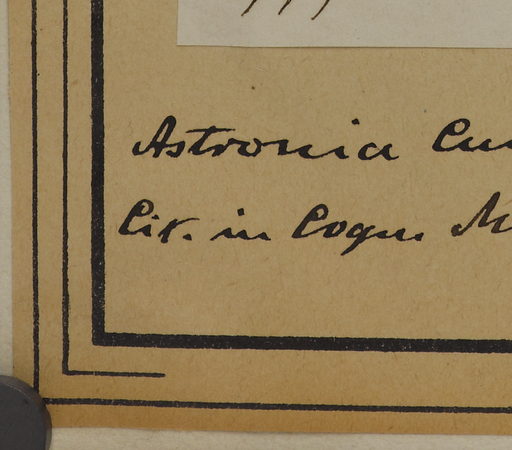 Astronia Cu
Cit. in Cogn. M